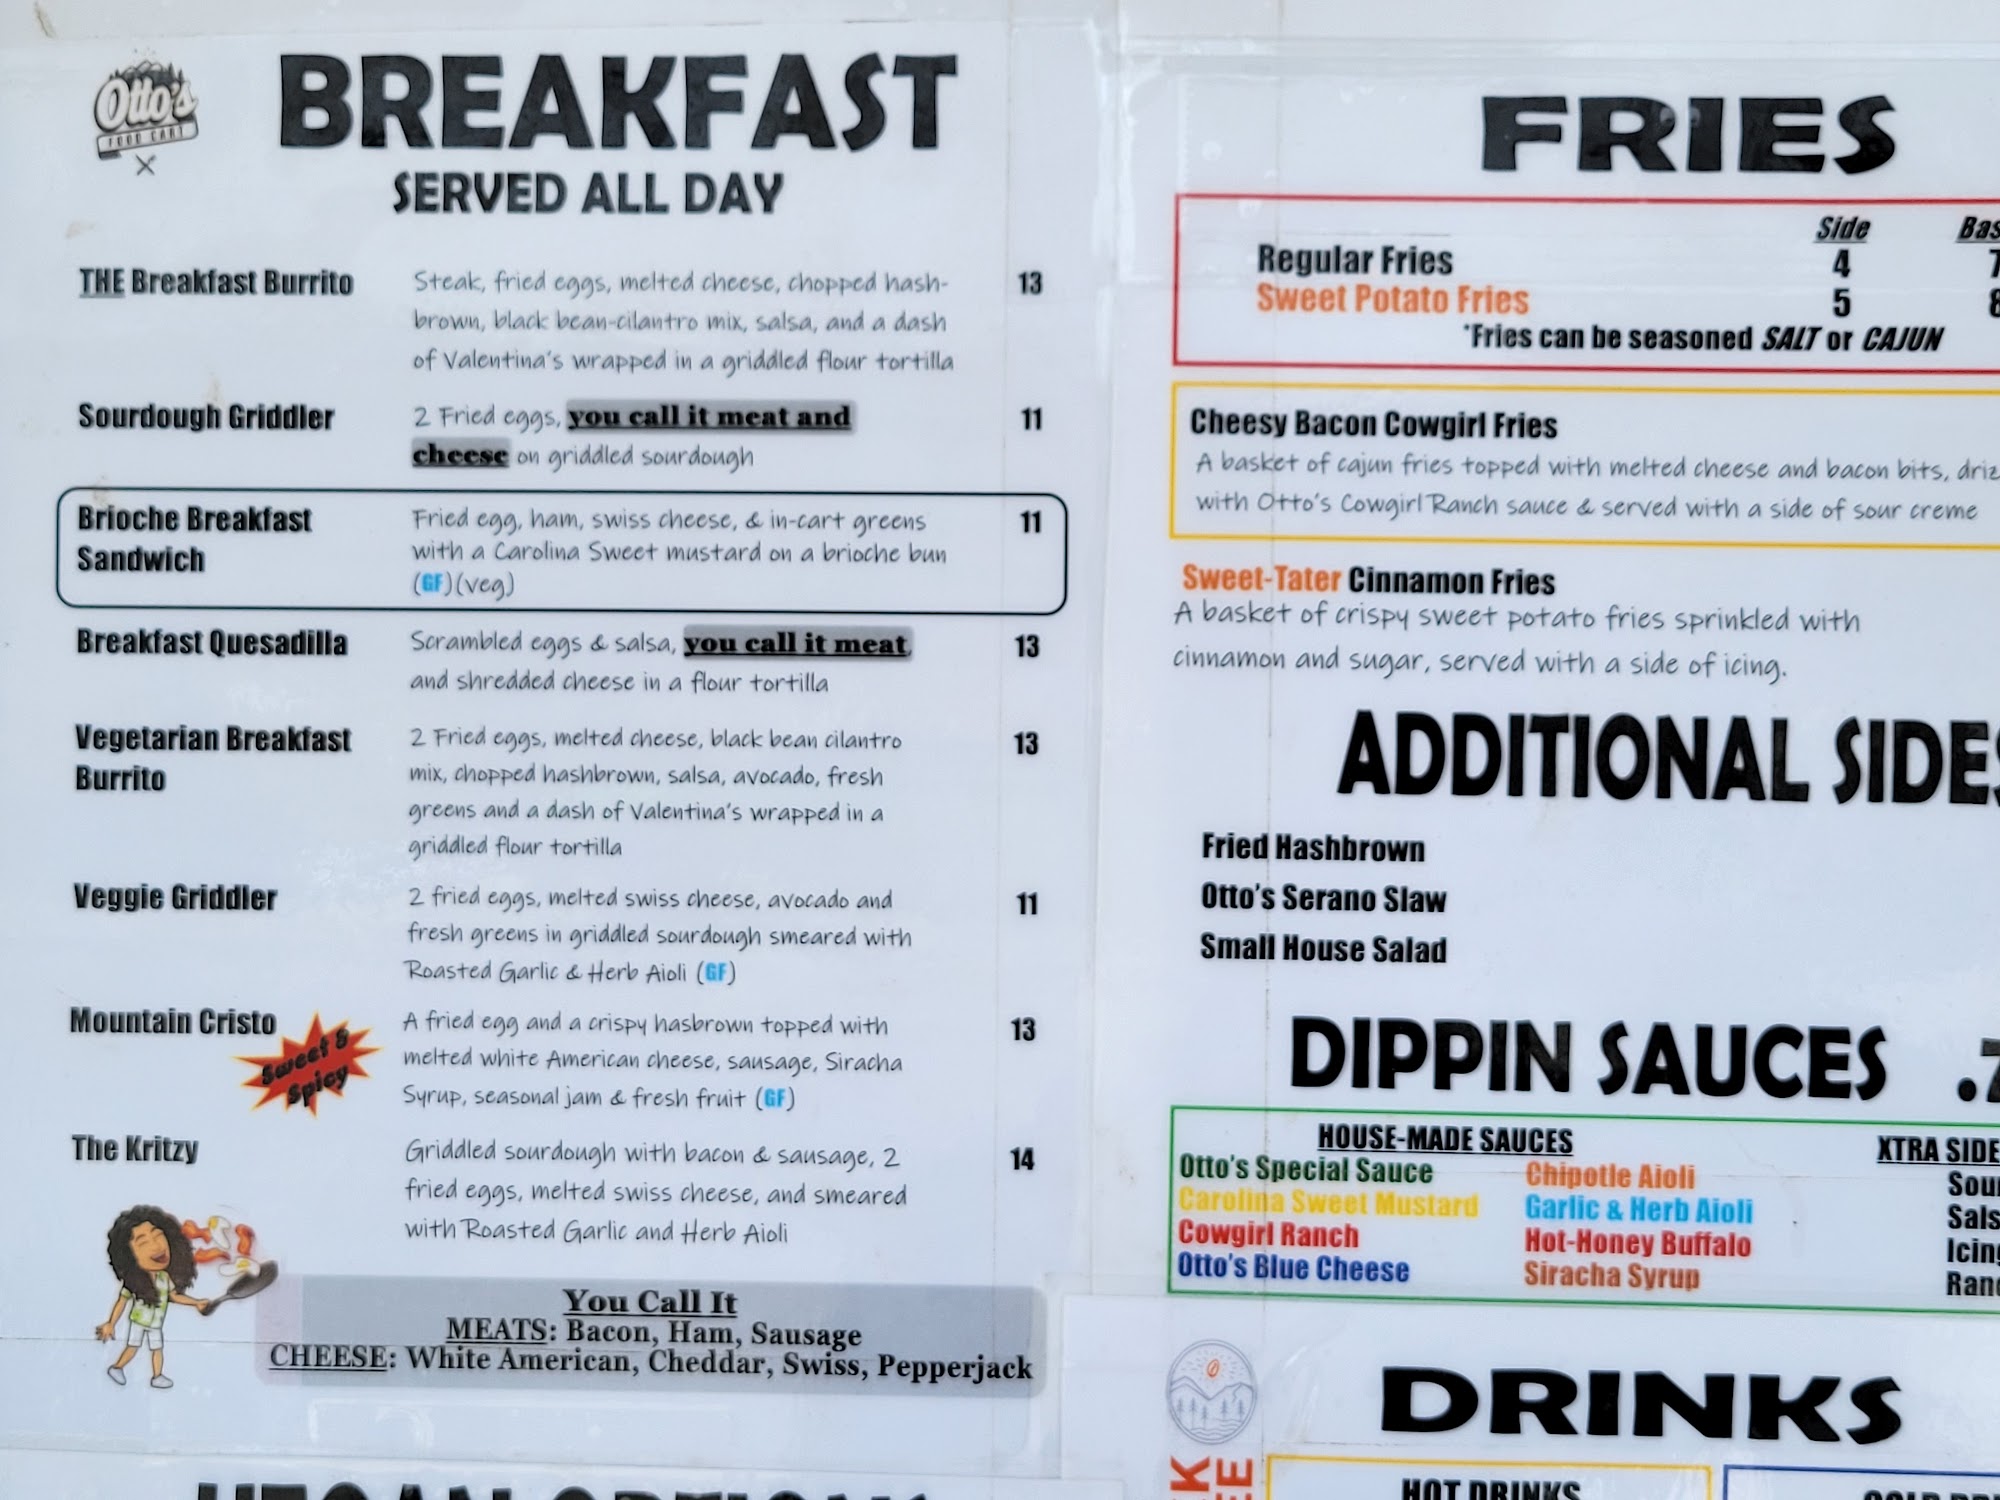 Otto's
FOOD CART
BREAKFAST
SERVED ALL DAY
THE Breakfast Burrito
Steak, fried eggs, melted cheese, chopped hash-
brown, black bean-cilantro mix, salsa, and a dash
of Valentina's wrapped in a griddled flour tortilla
13
Sourdough Griddler
2 Fried eggs, you call it meat and
cheese on griddled sourdough
11
Brioche Breakfast
Sandwich
Fried egg, ham, swiss cheese, & in-cart greens
with a Carolina Sweet mustard on a brioche bun
(GF)(veg)
11
Breakfast Quesadilla
Scrambled eggs & salsa, you call it meat,
and shredded cheese in a flour tortilla
13
Vegetarian Breakfast
Burrito
2 Fried eggs, melted cheese, black bean cilantro
mix, chopped hashbrown, salsa, avocado, fresh
greens and a dash of Valentina's wrapped in a
griddled flour tortilla
13
Veggie Griddler
2 fried eggs, melted swiss cheese, avocado and
fresh greens in griddled sourdough smeared with
Roasted Garlic & Herb Aioli (GF)
11
Mountain Cristo
Sweet &
Spicy
A fried egg and a crispy hasbrown topped with
melted white American cheese, sausage, Siracha
Syrup, seasonal jam & fresh fruit (GF)
13
The Kritzy
Griddled sourdough with bacon & sausage, 2
fried eggs, melted swiss cheese, and smeared
with Roasted Garlic and Herb Aioli
14
You Call It
MEATS: Bacon, Ham, Sausage
CHEESE: White American, Cheddar, Swiss, Pepperjack
FRIES
Side Bas
Regular Fries 4 7
Sweet Potato Fries 5 8
*Fries can be seasoned SALT or CAJUN
Cheesy Bacon Cowgirl Fries
A basket of cajun fries topped with melted cheese and bacon bits, driz
with Otto's Cowgirl Ranch sauce & served with a side of sour creme
Sweet-Tater Cinnamon Fries
A basket of crispy sweet potato fries sprinkled with
cinnamon and sugar, served with a side of icing.
ADDITIONAL SIDES
Fried Hashbrown
Otto's Serano Slaw
Small House Salad
DIPPIN SAUCES .7
HOUSE-MADE SAUCES
Otto's Special Sauce
Carolina Sweet Mustard
Cowgirl Ranch
Otto's Blue Cheese
Chipotle Aioli
Garlic & Herb Aioli
Hot-Honey Buffalo
Siracha Syrup
XTRA SIDE
Sour
Sals
Icing
Ranc
DRINKS
HOT DRINKS